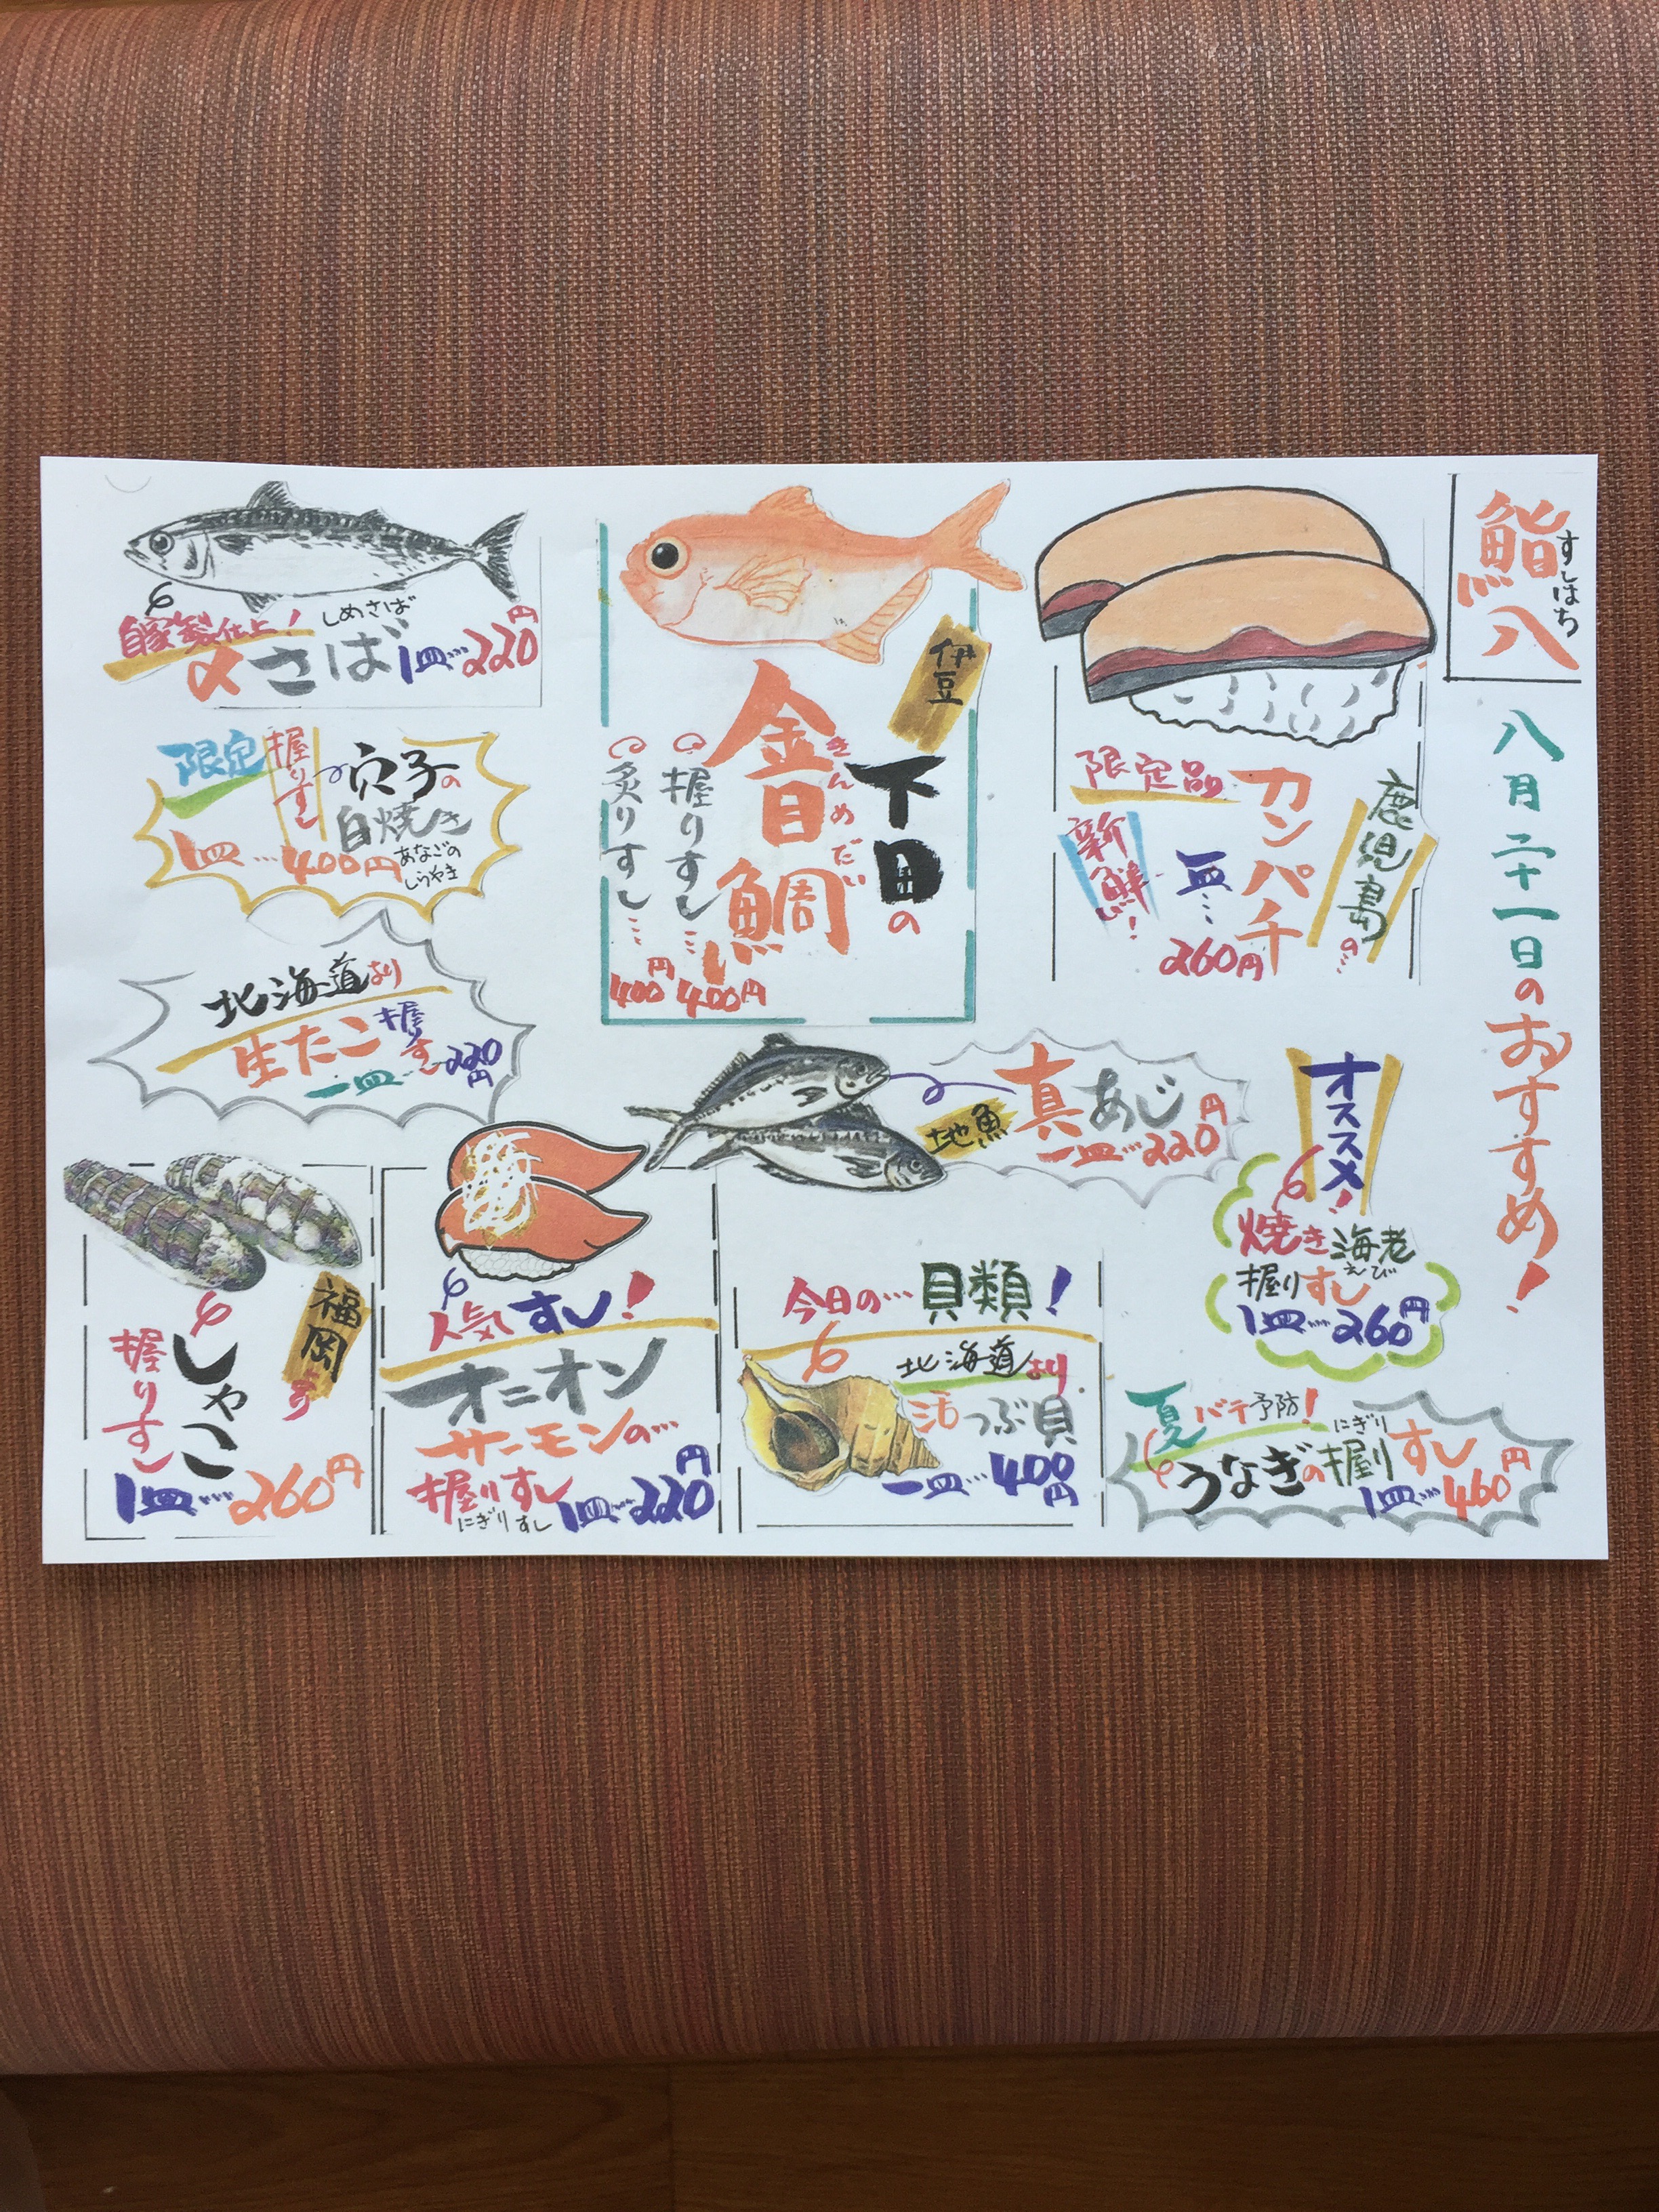 鮨八
すしはち
八月二十一日のおすすめ!
鹿児島の…
カンパチ
限定品
新鮮!
一皿…
260円
伊豆
下田の
金目鯛
きんめだい
握りすし…400円
炙りすし…400円
自家製仕上!
しめさば
〆さば 1皿…220円
限定
握りすし
穴子の
白焼き
あなごの
しらやき
1皿…400円
北海道より
生たこ握りすし
一皿…220円
地魚
真あじ
一皿…220円
オススメ!
焼き海老
えび
握りすし
1皿…260円
夏バテ予防!
にぎり
うなぎの握りすし
1皿…460円
今日の…貝類!
北海道より
活つぶ貝
一皿…400円
人気すし!
オニオン
サーモンの…
握りすし
にぎりすし
1皿…220円
福岡より
しゃこ
握りすし
1皿…260円